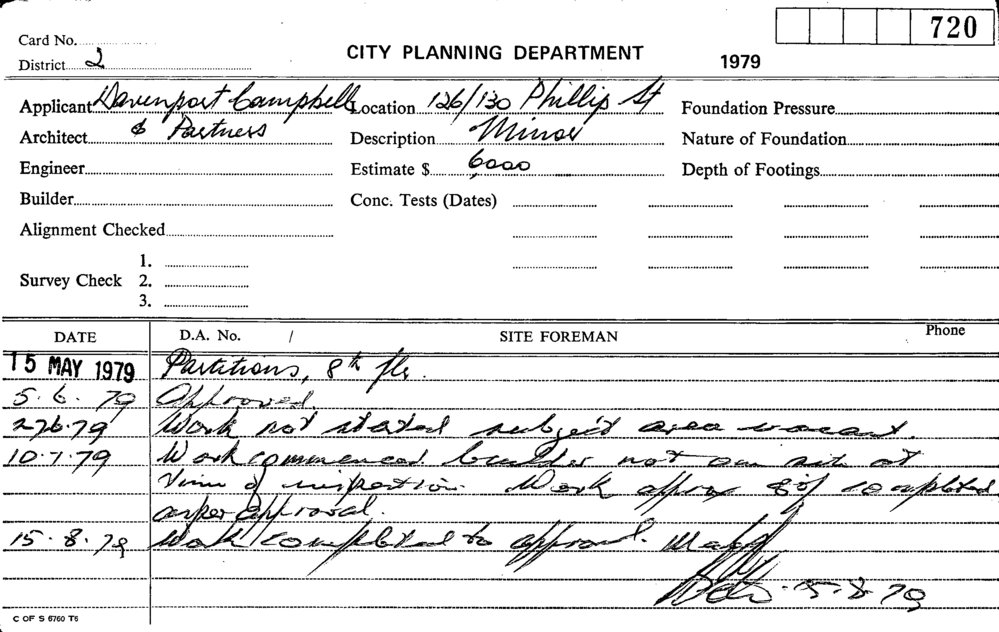 720
Card No.
CITY PLANNING DEPARTMENT 1979
District 2
Applicant Davenport Campbell Location 126/130 Phillip St Foundation Pressure
Architect & Partners Description Minor Nature of Foundation
Engineer Estimate $ 6000 Depth of Footings
Builder Conc. Tests (Dates)
Alignment Checked
1.
Survey Check 2.
3.
DATE D.A. No. / SITE FOREMAN Phone
15 MAY 1979 Partitions, 8th flr.
5.6.79 Approved
27.6.79 Work not started subject area vacant.
10.7.79 Work commenced. builder not on site at
time of inspection. Work approx completed
as per approval.
15.8.79 Work completed to approval.
15.8.79
C OF S 6760 T6